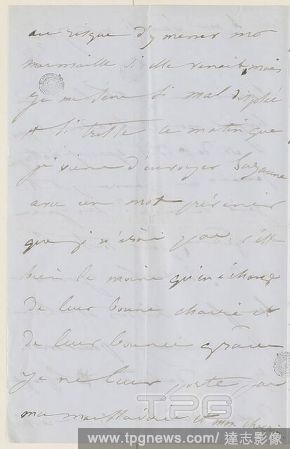 au risque d'y mener ma
marmaille si elle venait, mais
je me sens si mal disposée
et si triste ce matin que
je viens d'envoyer Suzanne
avec un mot prévenir
que je n'irai pas. C'est
bien le moins qu'en échange
de leur bonne chair et
de leur bonne grâce
je ne leur porte pas
ma maussaderie et mon chagrin
TPG
www.tpgnews.com / 達志影像